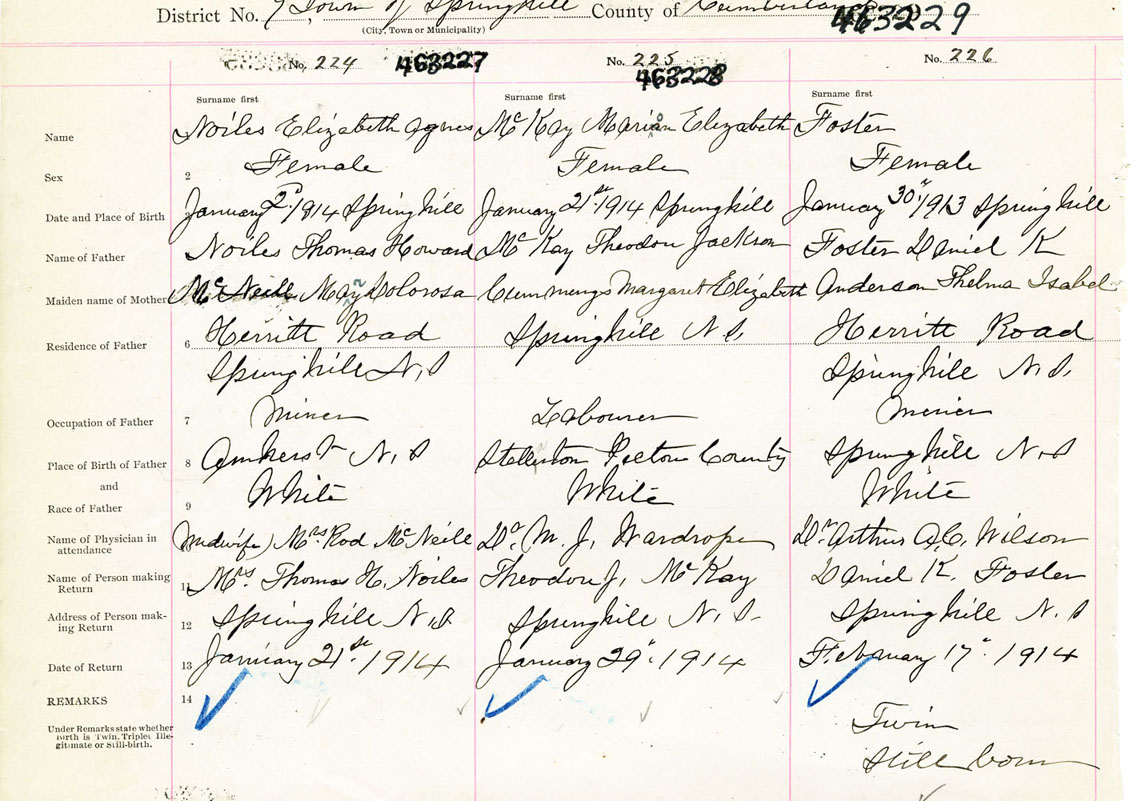 District No. 7, Town of Springhill County of Cumberland
(City, Town or Municipality)
463229
No. 224 463227 No. 225 463228 No. 226
Surname first Surname first Surname first
Name Noiles Elizabeth Agnes Mc Kay Marion Elizabeth Foster
Sex 2 Female Female Female
Date and Place of Birth January 2d 1914 Springhill January 21st 1914 Springhill January 30" 1913 Springhill
Name of Father Noiles Thomas Howard Mc Kay Theodore Jackson Foster Daniel K
Maiden name of Mother Mc Neill May Dolorosa Cummings Margaret Elizabeth Anderson Thelma Isabel
Residence of Father 6 Herritt Road Springhill N.S. Herritt Road
Springhill N.S Springhill N.S.
Occupation of Father 7 Miner Labourer Miner
Place of Birth of Father 8 Amherst N.S Stellarton Pictou County Springhill N.S
and
Race of Father 9 White White White
Name of Physician in attendance (Midwife) Mrs Rod McNeile Dr. M. J. Wardrope Dr. Arthur A.C. Wilson
Name of Person making Return 11 Mrs. Thomas H. Noiles Theodore J. McKay Daniel K. Foster
Address of Person making Return 12 Springhill N.S Springhill N.S. Springhill N.S
Date of Return 13 January 21st 1914 January 29" 1914 February 17" 1914
REMARKS 14
Under Remarks state whether birth is Twin, Triplet Illegitimate or Still-birth.
Twin
Still born